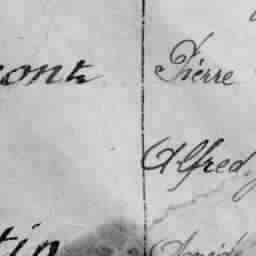 mont Pierre
Alfred
tin